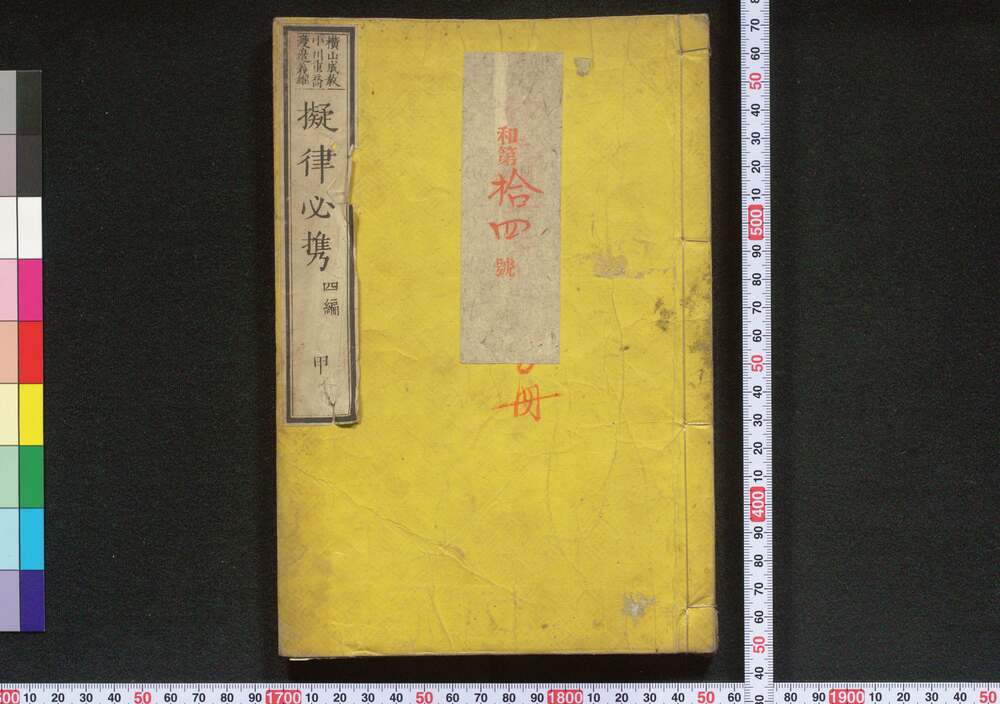 和第
拾四
號
冊
横山成教
小川重
擬律必携
四編
甲
70
60
50
40
30
20
10
500
90
80
70
60
50
40
30
20
10
400
90
80
70
60
50
40
30
10
20
30
40
50
60
70
80
90
1700
10
20
30
40
50
60
70
80
90
1800
10
20
30
40
50
60
80
90
1900
10
20
30
40
50